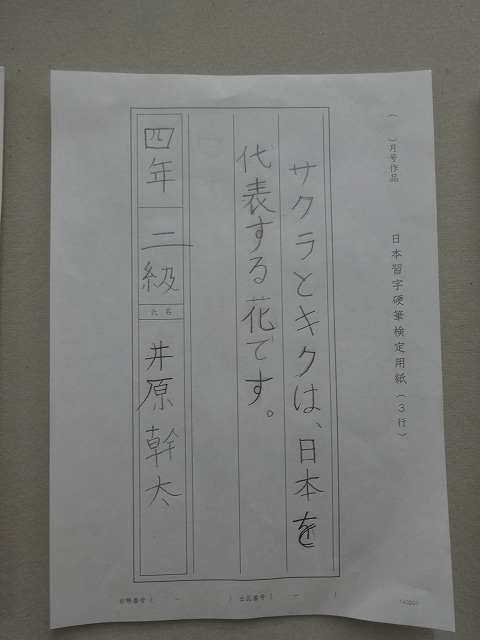 （　）月号作品
日本習字硬筆検定用紙（3行）
サクラとキクは、日本を
代表する花です。
四年
二級
氏名
井原幹太
合格番号（　－　）出品番号（　－　）
140201